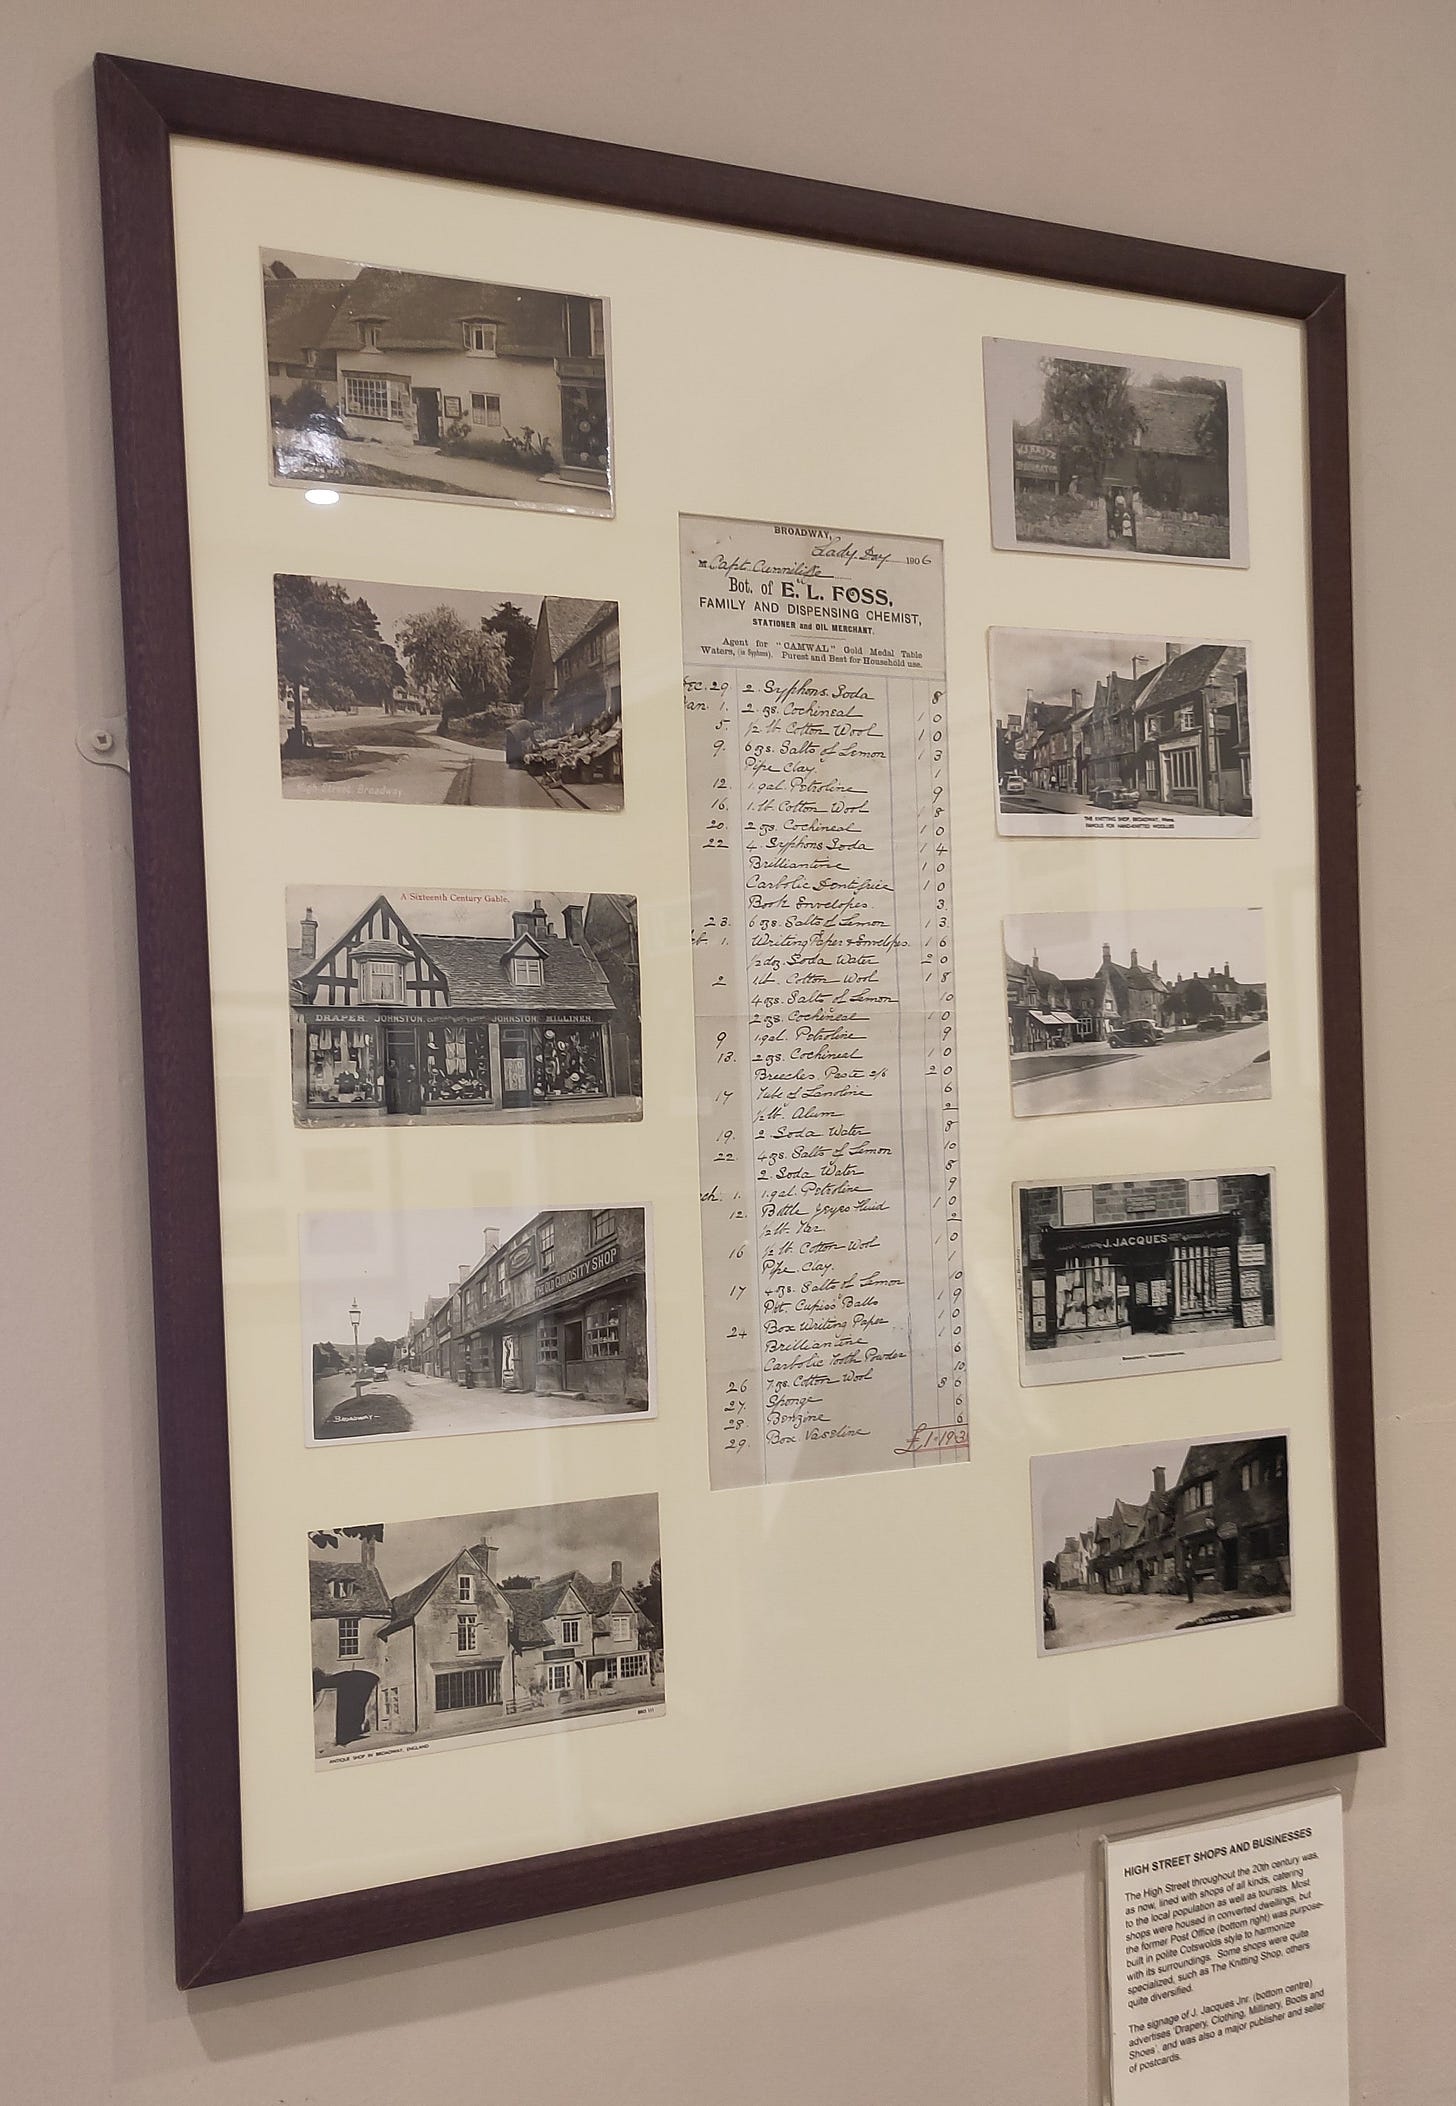 High Street. Broadway.
A Sixteenth Century Gable.
DRAPER. JOHNSTON. JOHNSTON. MILLINER.
THE OLD CURIOSITY SHOP
BROADWAY
ANTIQUE SHOP IN BROADWAY, ENGLAND
BRO 111
BROADWAY,
Lady Day 1906
M Capt. Cunniliffe
Bot. of E. L. FOSS,
FAMILY AND DISPENSING CHEMIST,
STATIONER and OIL MERCHANT.
Agent for "CAMWAL" Gold Medal Table
Waters, (in Syphons). Purest and Best for Household use.
ec. 29. 2. Syphons Soda 8
an. 1. 2. ozs. Cochineal 1 0
5. 1/2 lb Cotton Wool 1 0
9. 6 ozs. Salts of Lemon 1 3
Pipe Clay. 1
12. 1. gal. Petroline 9
16. 1. lb Cotton Wool 1 8
20. 2 ozs. Cochineal 1 0
22 4. Syphons Soda 1 4
Brilliantine 1 0
Carbolic Dentifrice 1 0
Book Envelopes. 3.
23. 6 ozs. Salts of Lemon 1 3.
eb 1. Writing Paper & Envelopes. 1 6
1/2 doz. Soda Water 2 0
2 1 lb. Cotton Wool 1 8
4 ozs. Salts of Lemon 10
2 ozs. Cochineal 1 0
9 1. gal. Petroline 9
13. 2 ozs. Cochineal 1 0
Breeches Paste 2/6 2 0
17 Tube of Lanoline 6
1/2 lb. Alum 2
19. 2. Soda Water 8
22. 4 ozs. Salts of Lemon 10
2. Soda Water 8
ch. 1. 1. gal. Petroline 9
12. Bottle Jeyes Fluid 1 0
1/2 lb. 2
16 1/2 lb. Cotton Wool 1 0
Pipe. Clay. 1
17 4 ozs. Salts of Lemon 10
Pkt. Cupiss Balls 1 9
24 Box Writing Paper 1 0
Brilliantine 1 0
Carbolic Tooth Powder 6
26 7 ozs. Cotton Wool 10
27. Sponge 3 6
28. Benzine 6
29. Box Vaseline 6
£1-19-3
THE KNITTING SHOP, BROADWAY, Worcs.
FAMOUS FOR HAND-KNITTED WOOLLIES
J. JACQUES
HIGH STREET SHOPS AND BUSINESSES
The High Street throughout the 20th century was,
as now, lined with shops of all kinds, catering
to the local population as well as tourists. Most
shops were housed in converted dwellings, but
the former Post Office (bottom right) was purpose-
built in polite Cotswolds style to harmonize
with its surroundings. Some shops were quite
specialized, such as The Knitting Shop, others
quite diversified.
The signage of J. Jacques Jnr. (bottom centre)
advertises 'Drapery, Clothing, Millinery, Boots and
Shoes', and was also a major publisher and seller
of postcards.